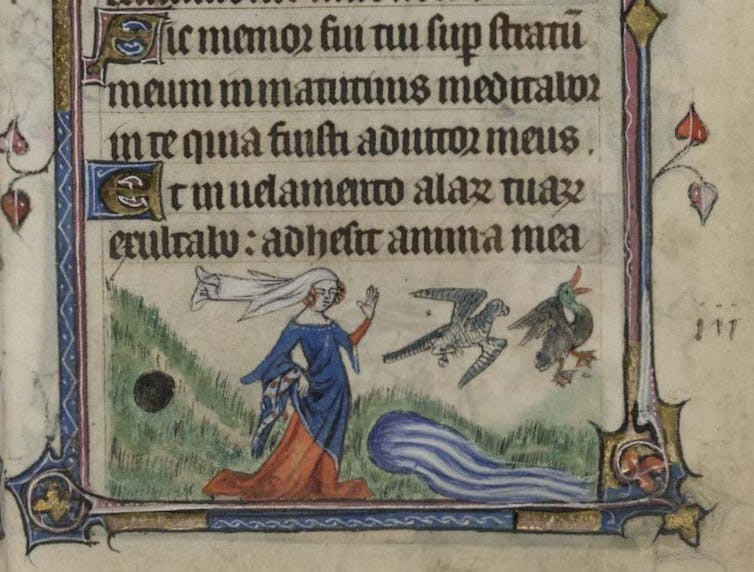 Sic memor fui tui suꝑ stratū
meum in matutinis meditabor
in te quia fuisti adiutor meus.
Et in uelamento alaꝝ tuaꝝ
exultabo : adhesit anima mea
iii